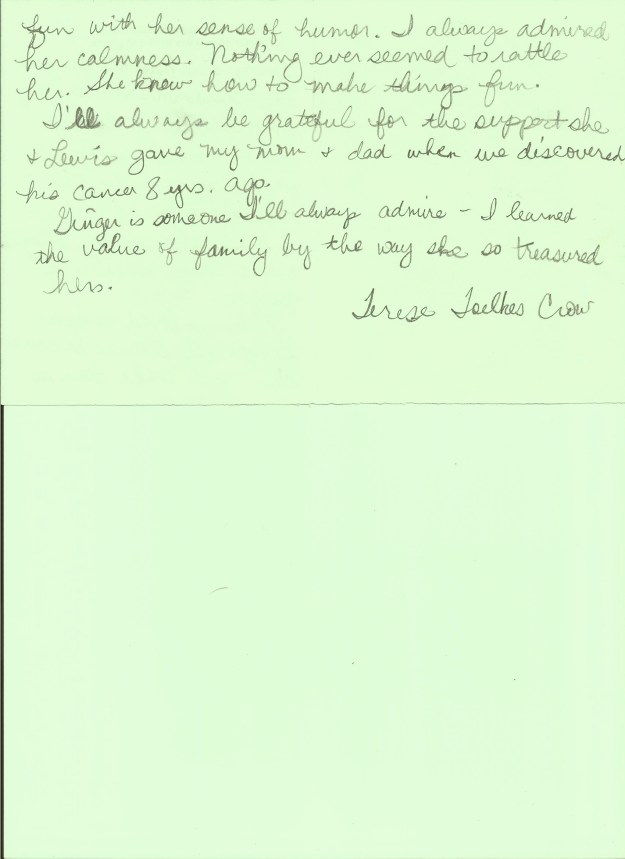 fun with her sense of humor. I always admired
her calmness. Nothing ever seemed to rattle
her. She knew how to make things fun.
I'll always be grateful for the support she
& Lewis gave my mom & dad when we discovered
his cancer 8 yrs. ago.
Ginger is someone I'll always admire - I learned
the value of family by the way she so treasured
hers.
Terese Toelkes Crow